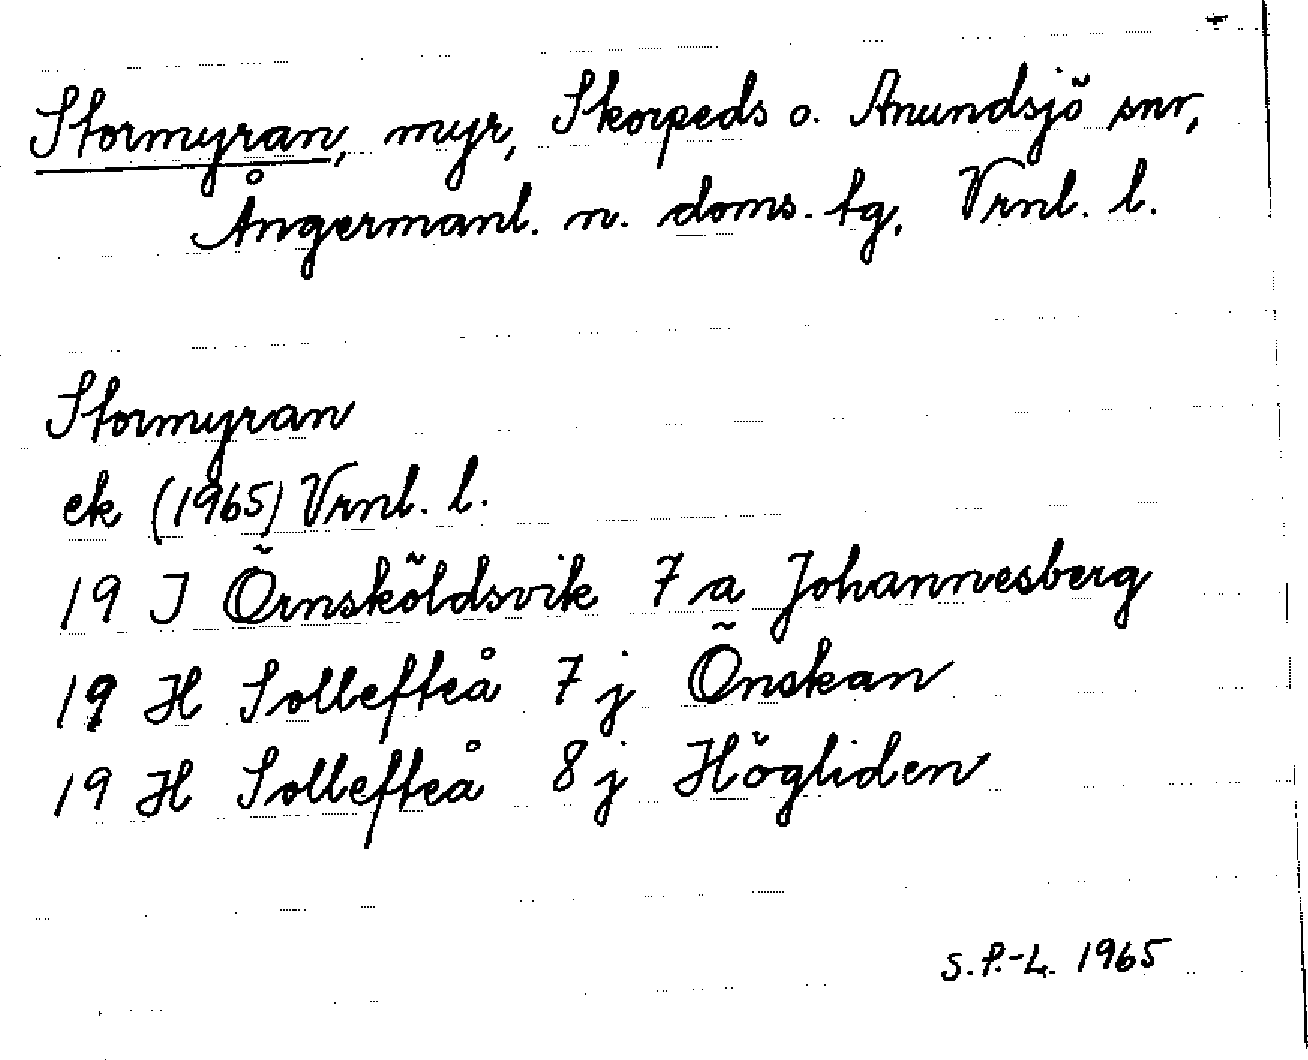 Stormyran, myr, Skorpeds o. Anundsjö snr,
Ångermanl. n. doms. tg, Vrnl. l.
Stormyran
ek (1965) Vrnl. l.
19 J Örnsköldsvik 7 a Johannesberg
19 H Sollefteå 7 j Önskan
19 H Sollefteå 8 j Högliden
S.P.-L. 1965